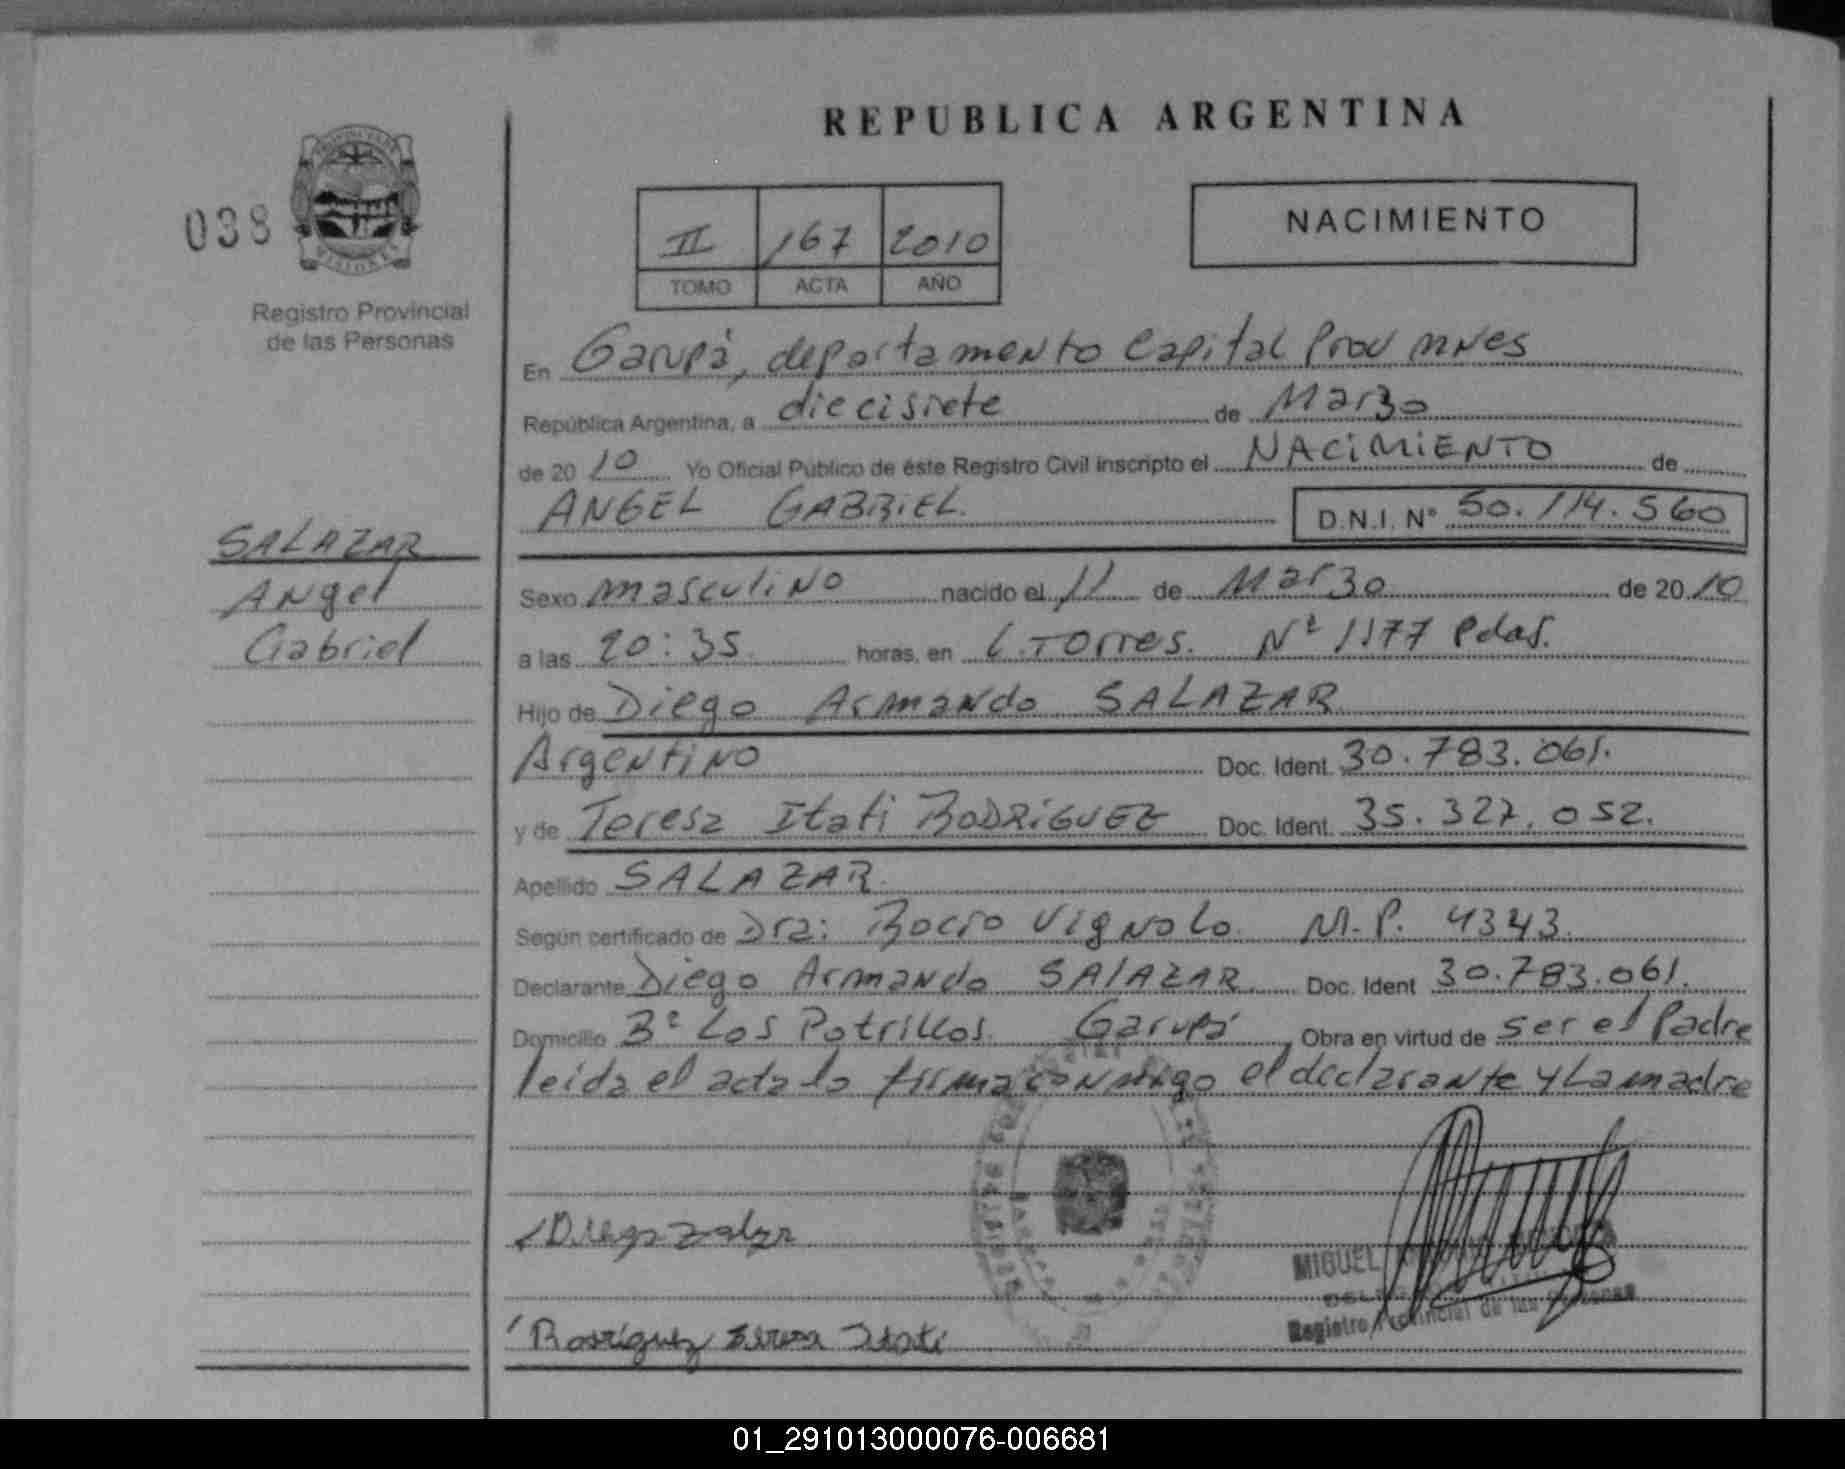 REPUBLICA ARGENTINA
038
NACIMIENTO
II 167 2010
TOMO ACTA AÑO
Registro Provincial
de las Personas
En Garupá, departamento Capital Prov mnes
República Argentina, a diecisiete de Marzo
de 20 10 Yo Oficial Público de éste Registro Civil inscripto el NACIMIENTO de
ANGEL GABRIEL. D.N.I. N° 50.114.560
SALAZAR
Angel
Gabriel
Sexo masculino nacido el 11 de Marzo de 20 10
a las 20:35 horas, en L. Torres. Nº 1177 Pdas.
Hijo de Diego Armando SALAZAR
Argentino Doc. Ident. 30.783.061.
y de Teresa Itati RODRiGUEZ Doc. Ident. 35.327.052.
Apellido SALAZAR
Según certificado de Dra: Rocio Vignolo M.P. 4343.
Declarante Diego Armando SALAZAR Doc. Ident 30.783.061.
Domicilio Bº Los Potrillos. Garupá Obra en virtud de ser el Padre
leida el acta la firma conmigo el declarante y La madre
MIGUEL
Registro Provincial de las Personas
Rodríguez Teresa Itati
01_291013000076-006681